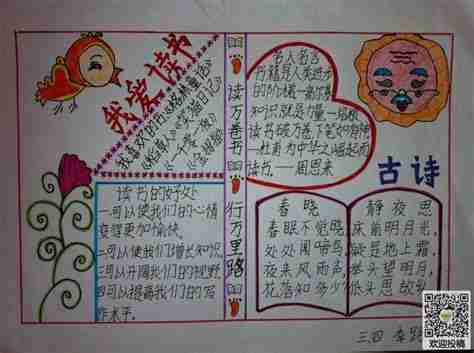 我爱读书
我喜欢的书:《格林童话》
《稻草人》《笑猫日记》
《一千零一夜》
《金银岛》
读书的好处
一可以使我们的心情
变得更加愉快。
二可以使我们增长知识。
三可以开阔我们的视野
四可以提高我们的写
作水平。
读万卷书
行万里路
名人名言
书籍是人类进步
的阶梯—高尔基
知识就是力量—培根
读书破万卷下笔如有神
—杜甫 为中华之崛起而
读书。—周恩来
古诗
春晓
春眠不觉晓,
处处闻啼鸟。
夜来风雨声,
花落知多少?
静夜思
床前明月光,
疑是地上霜,
举头望明月,
低头思故
三四 李
欢迎投稿